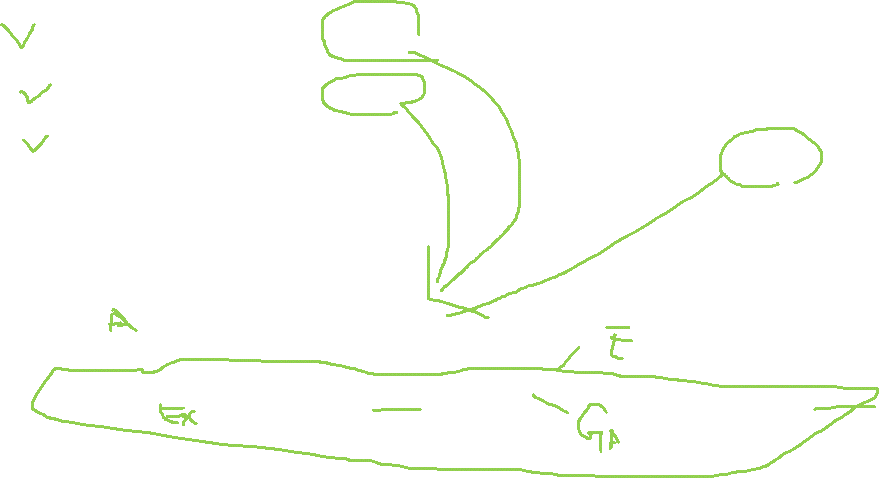 A
E
Ex
GA